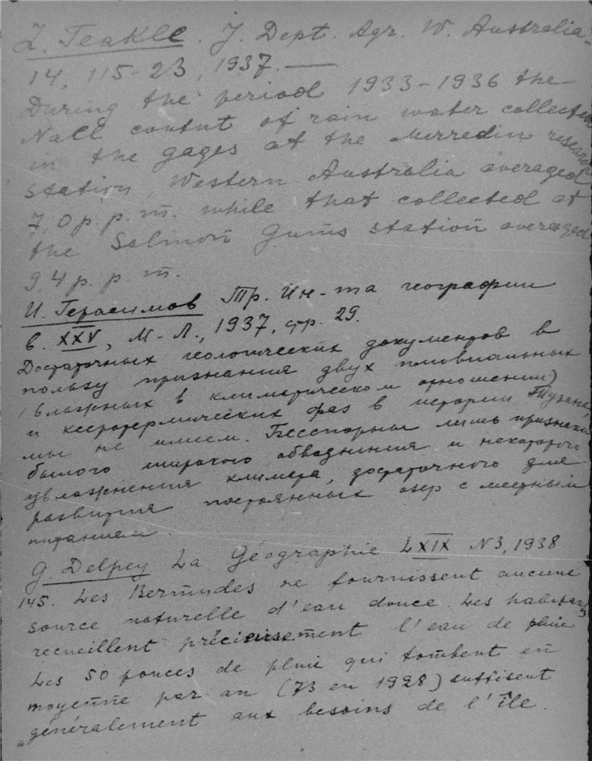 L. Teakle. J. Dept. Agr. W. Australia
14, 115-23, 1937. —
During the period 1933-1936 the
NaCl contnt of rain water collected
in the gages at the Merredin research
station Western Australia averaged
7,0 p.p.m. while that collected at
the Salmon Gums station averaged
9,4 p.p.m.
И. Герасимов Тр. Ин-та географии
в. XXV, М-Л., 1937, стр. 29.
Достаточных геологических документов в
пользу признания двух плювиальных
(влажных в климатическом отношении)
и ксеротермических фаз в истории Турана,
мы не имеем. Бесспорны лишь признаки
былого широкого обводнения и некоторого
увлажнения климата, достаточного для
развития постоянных озер с местным
питанием.
G Delpey La Géographie LXIX N3, 1938
145. Les Bermudes ne fournissent aucune
source naturelle d'eau douce. Les habitants
recueillent précieusement l'eau de pluie
Les 50 pouces de pluie qui tombent en
moyenne par an (73 en 1928) suffisent
généralement aux besoins de l'île.